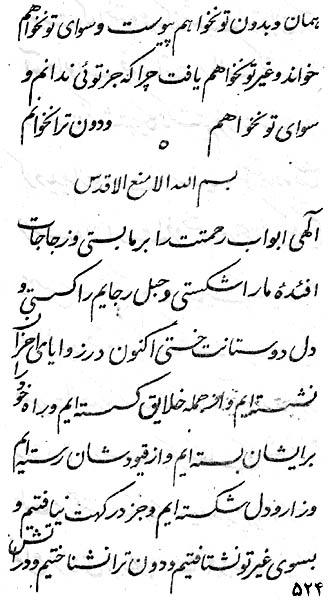 همان و بدون تو نخواهم پیوست و سوای تو نخواهم
خواند و غیر تو نخواهم یافت چرا که جز توئی ندانم و
سوای تو نخواهم و دون ترا نخوانم
بسم الله الامنع الاقدس
الهی ابواب رحمتت را بر ما بستی و زجاجات
افئدهٔ ما را شکستی و حبل رجایم را گسستی و
دل دوستانت خستی اکنون در زوایای احزان
نشسته‌ایم و از جمله خلایق گسسته‌ایم و راه خود را
برایشان بسته‌ایم و از قیودشان رسته‌ایم
و زار و دل شکسته‌ایم و جز درگهت نیافتیم و
بسوی غیر تو نشتافتیم و دون ترا نشناختیم و در آتش
۵۲۴